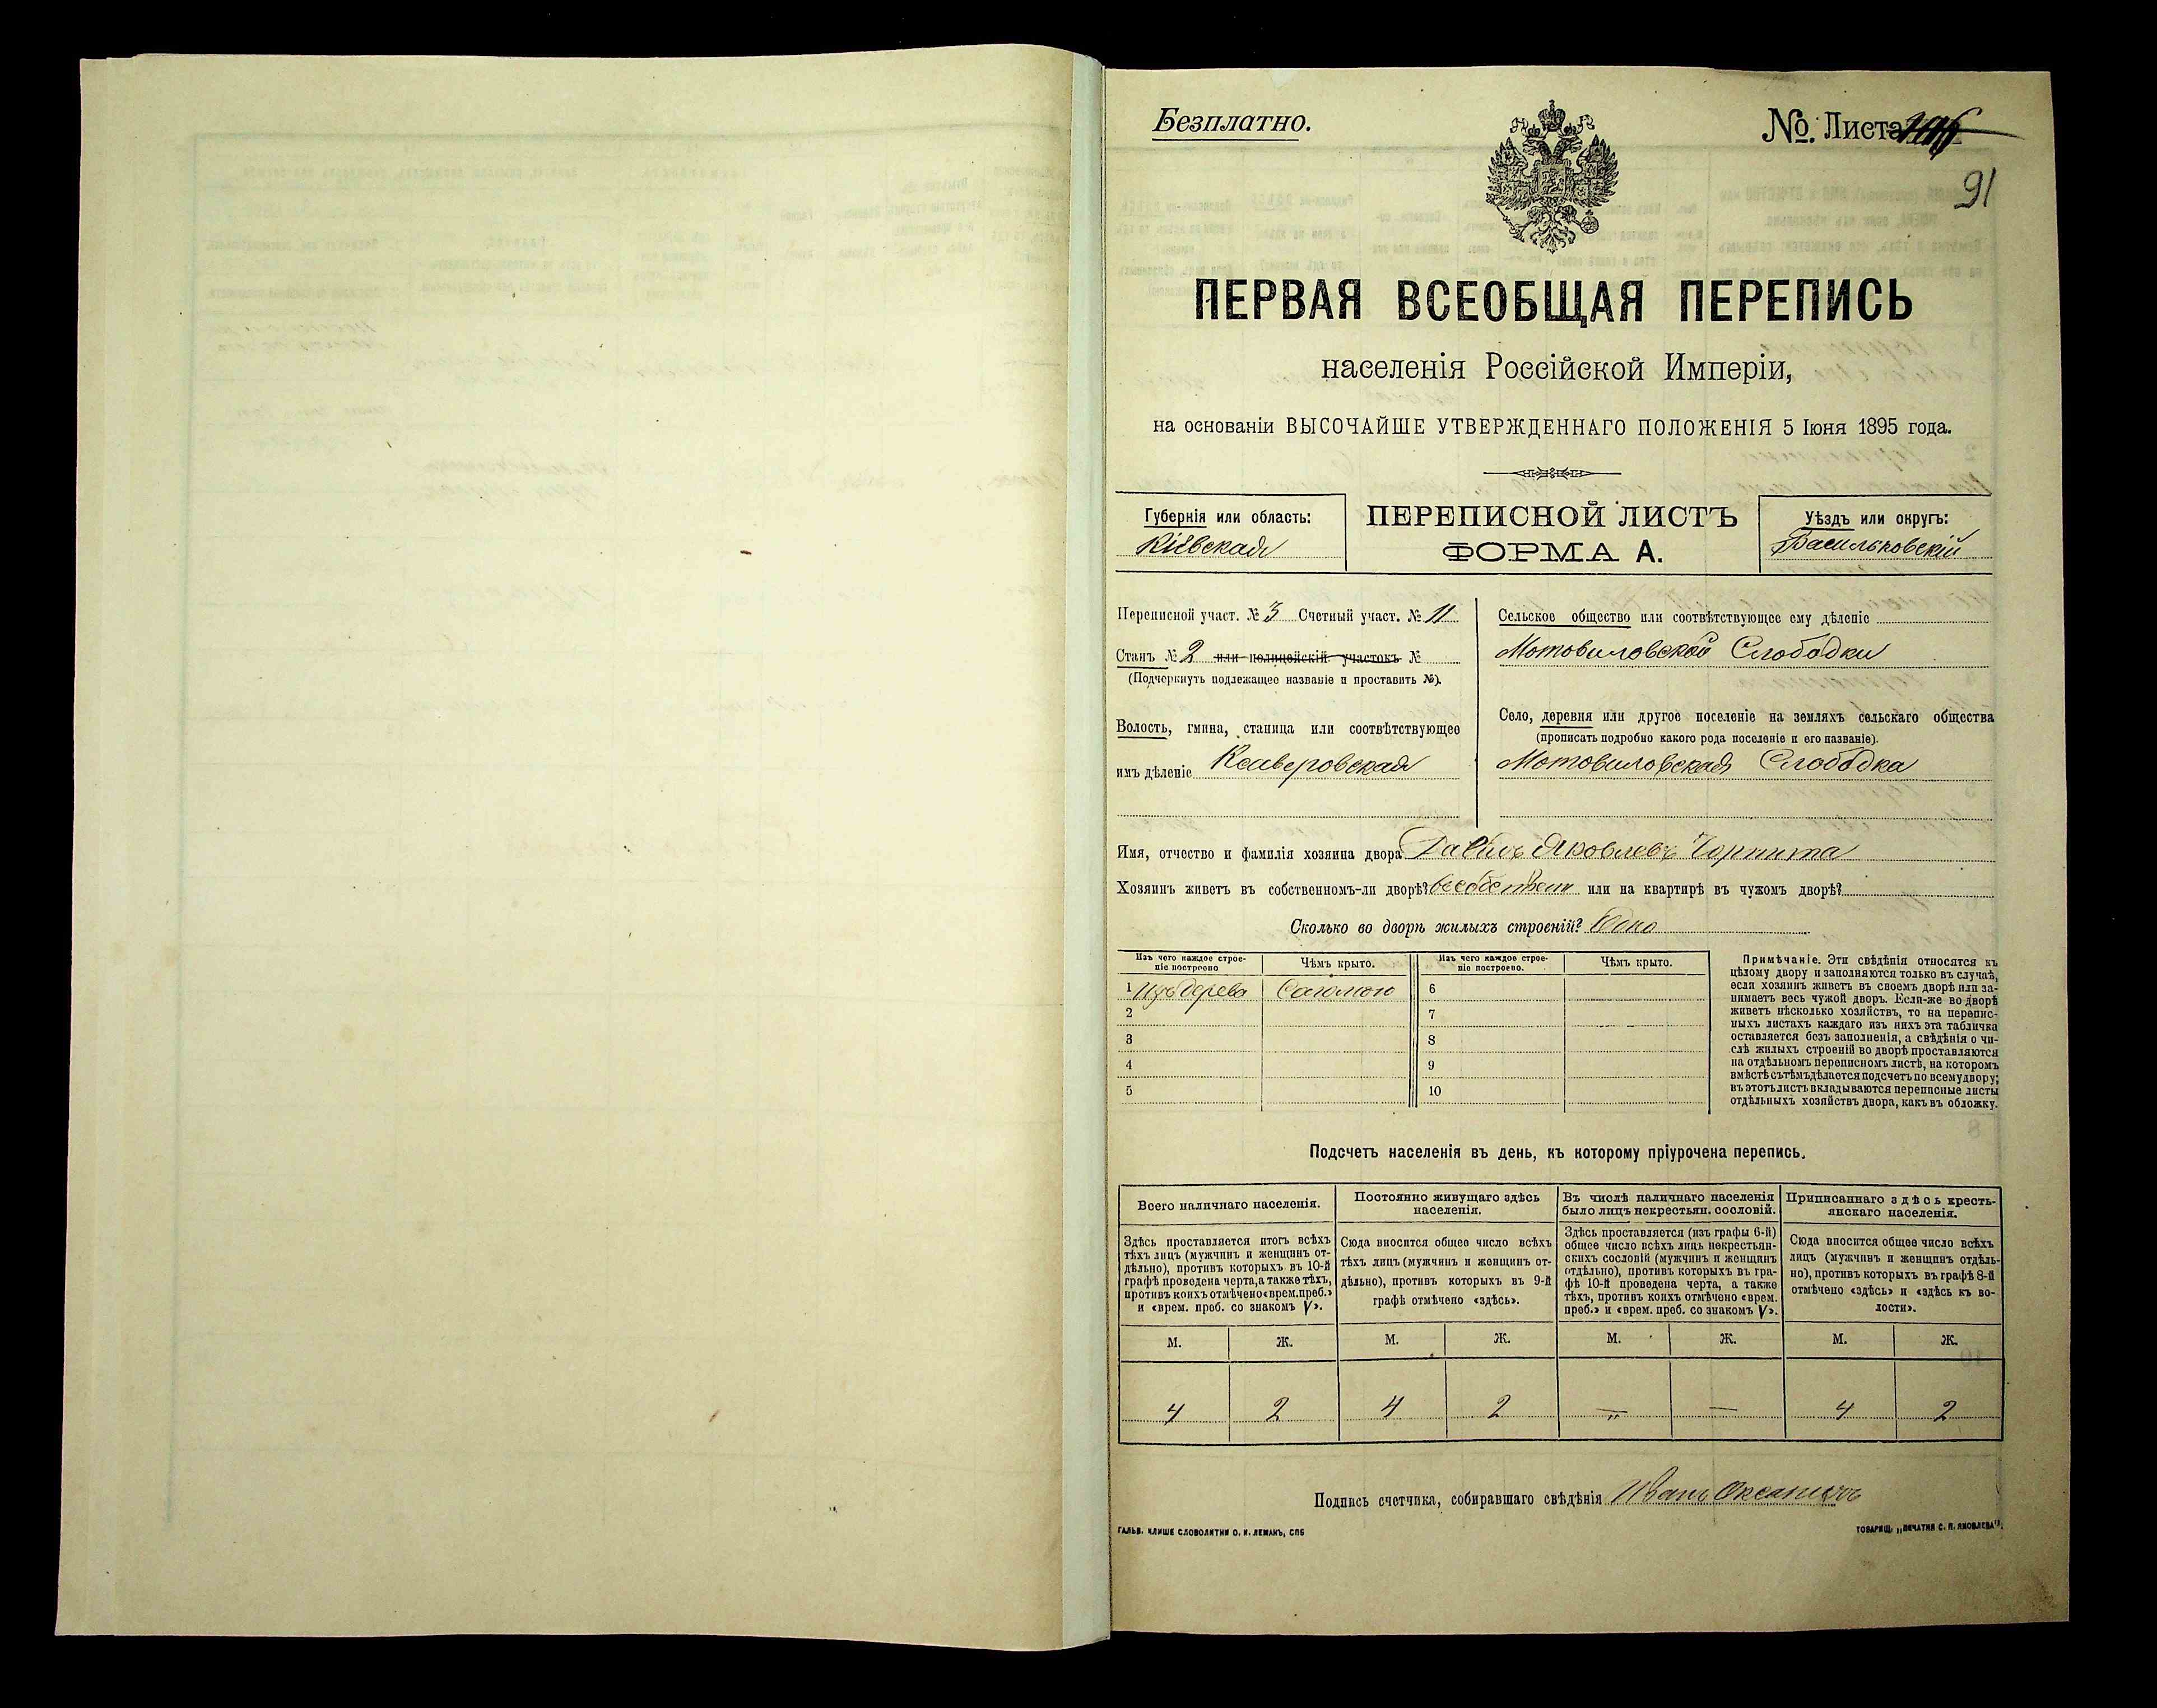 Безплатно.
№ Листа
91
ПЕРВАЯ ВСЕОБЩАЯ ПЕРЕПИСЬ
населенія Россійской Имперіи,
на основаніи ВЫСОЧАЙШЕ УТВЕРЖДЕННАГО ПОЛОЖЕНІЯ 5 Іюня 1895 года.
Губернія или область:
Кіевская
ПЕРЕПИСНОЙ ЛИСТЪ
ФОРМА А.
Уѣздъ или округъ:
Васильковскій
Переписной участ. № 3 Счетный участ. № 11
Станъ № 2 или полицейскій участокъ №
(Подчеркнуть подлежащее названіе и проставить №).
Волость, гмина, станица или соотвѣтствующее
имъ дѣленіе Ксаверовская
Сельское общество или соотвѣтствующее ему дѣленіе
Мотовиловской Слободки
Село, деревня или другое поселеніе на земляхъ сельскаго общества
(прописать подробно какого рода поселеніе и его названіе).
Мотовиловская Слободка
Имя, отчество и фамилія хозяина двора Яковлевъ
Хозяинъ живетъ въ собственномъ-ли дворѣ? или на квартирѣ въ чужомъ дворѣ?
Сколько во дворѣ жилыхъ строеній? Одно
Изъ чего каждое строе-
ніе построено
Чѣмъ крыто.
Изъ чего каждое строе-
ніе построено.
Чѣмъ крыто.
1 Изъ дерева Соломою 6
2 7
3 8
4 9
5 10
Примѣчаніе. Эти свѣдѣнія относятся къ
цѣлому двору и заполняются только въ случаѣ,
если хозяинъ живетъ въ своемъ дворѣ или за-
нимаетъ весь чужой дворъ. Если-же во дворѣ
живетъ нѣсколько хозяйствъ, то на перепис-
ныхъ листахъ каждаго изъ нихъ эта табличка
оставляется безъ заполненія, а свѣдѣнія о чи-
слѣ жилыхъ строеній во дворѣ проставляются
на отдѣльномъ переписномъ листѣ, на которомъ
вмѣстѣ съ тѣмъ дѣлается подсчетъ по всему двору;
въ этотъ листъ вкладываются переписные листы
отдѣльныхъ хозяйствъ двора, какъ въ обложку.
Подсчетъ населенія въ день, къ которому пріурочена перепись.
Всего наличнаго населенія.
Постоянно живущаго здѣсь
населенія.
Въ числѣ наличнаго населенія
было лицъ некрестьян. сословій.
Приписаннаго здѣсь кресть-
янскаго населенія.
Здѣсь проставляется итогъ всѣхъ
тѣхъ лицъ (мужчинъ и женщинъ от-
дѣльно), противъ которыхъ въ 10-й
графѣ проведена черта, а также тѣхъ,
противъ коихъ отмѣчено «врем. преб.»
и «врем. преб. со знакомъ V».
Сюда вносится общее число всѣхъ
тѣхъ лицъ (мужчинъ и женщинъ от-
дѣльно), противъ которыхъ въ 9-й
графѣ отмѣчено «здѣсь».
Здѣсь проставляется (изъ графы 6-й)
общее число всѣхъ лицъ некрестьян-
скихъ сословій (мужчинъ и женщинъ
отдѣльно), противъ которыхъ въ гра-
фѣ 10-й проведена черта, а также
тѣхъ, противъ коихъ отмѣчено «врем.
преб.» и «врем. преб. со знакомъ V».
Сюда вносится общее число всѣхъ
лицъ (мужчинъ и женщинъ отдѣль-
но), противъ которыхъ въ графѣ 8-й
отмѣчено «здѣсь» и «здѣсь къ во-
лости».
М. Ж. М. Ж. М. Ж. М. Ж.
4 2 4 2 — — 4 2
Подпись счетчика, собиравшаго свѣдѣнія Иванъ
ГАЛЬВ. КЛИШЕ СЛОВОЛИТНИ О. И. ЛЕМАНЪ, СПБ
ТОВАРИЩ. „ПЕЧАТНЯ С. П. ЯКОВЛЕВА“.